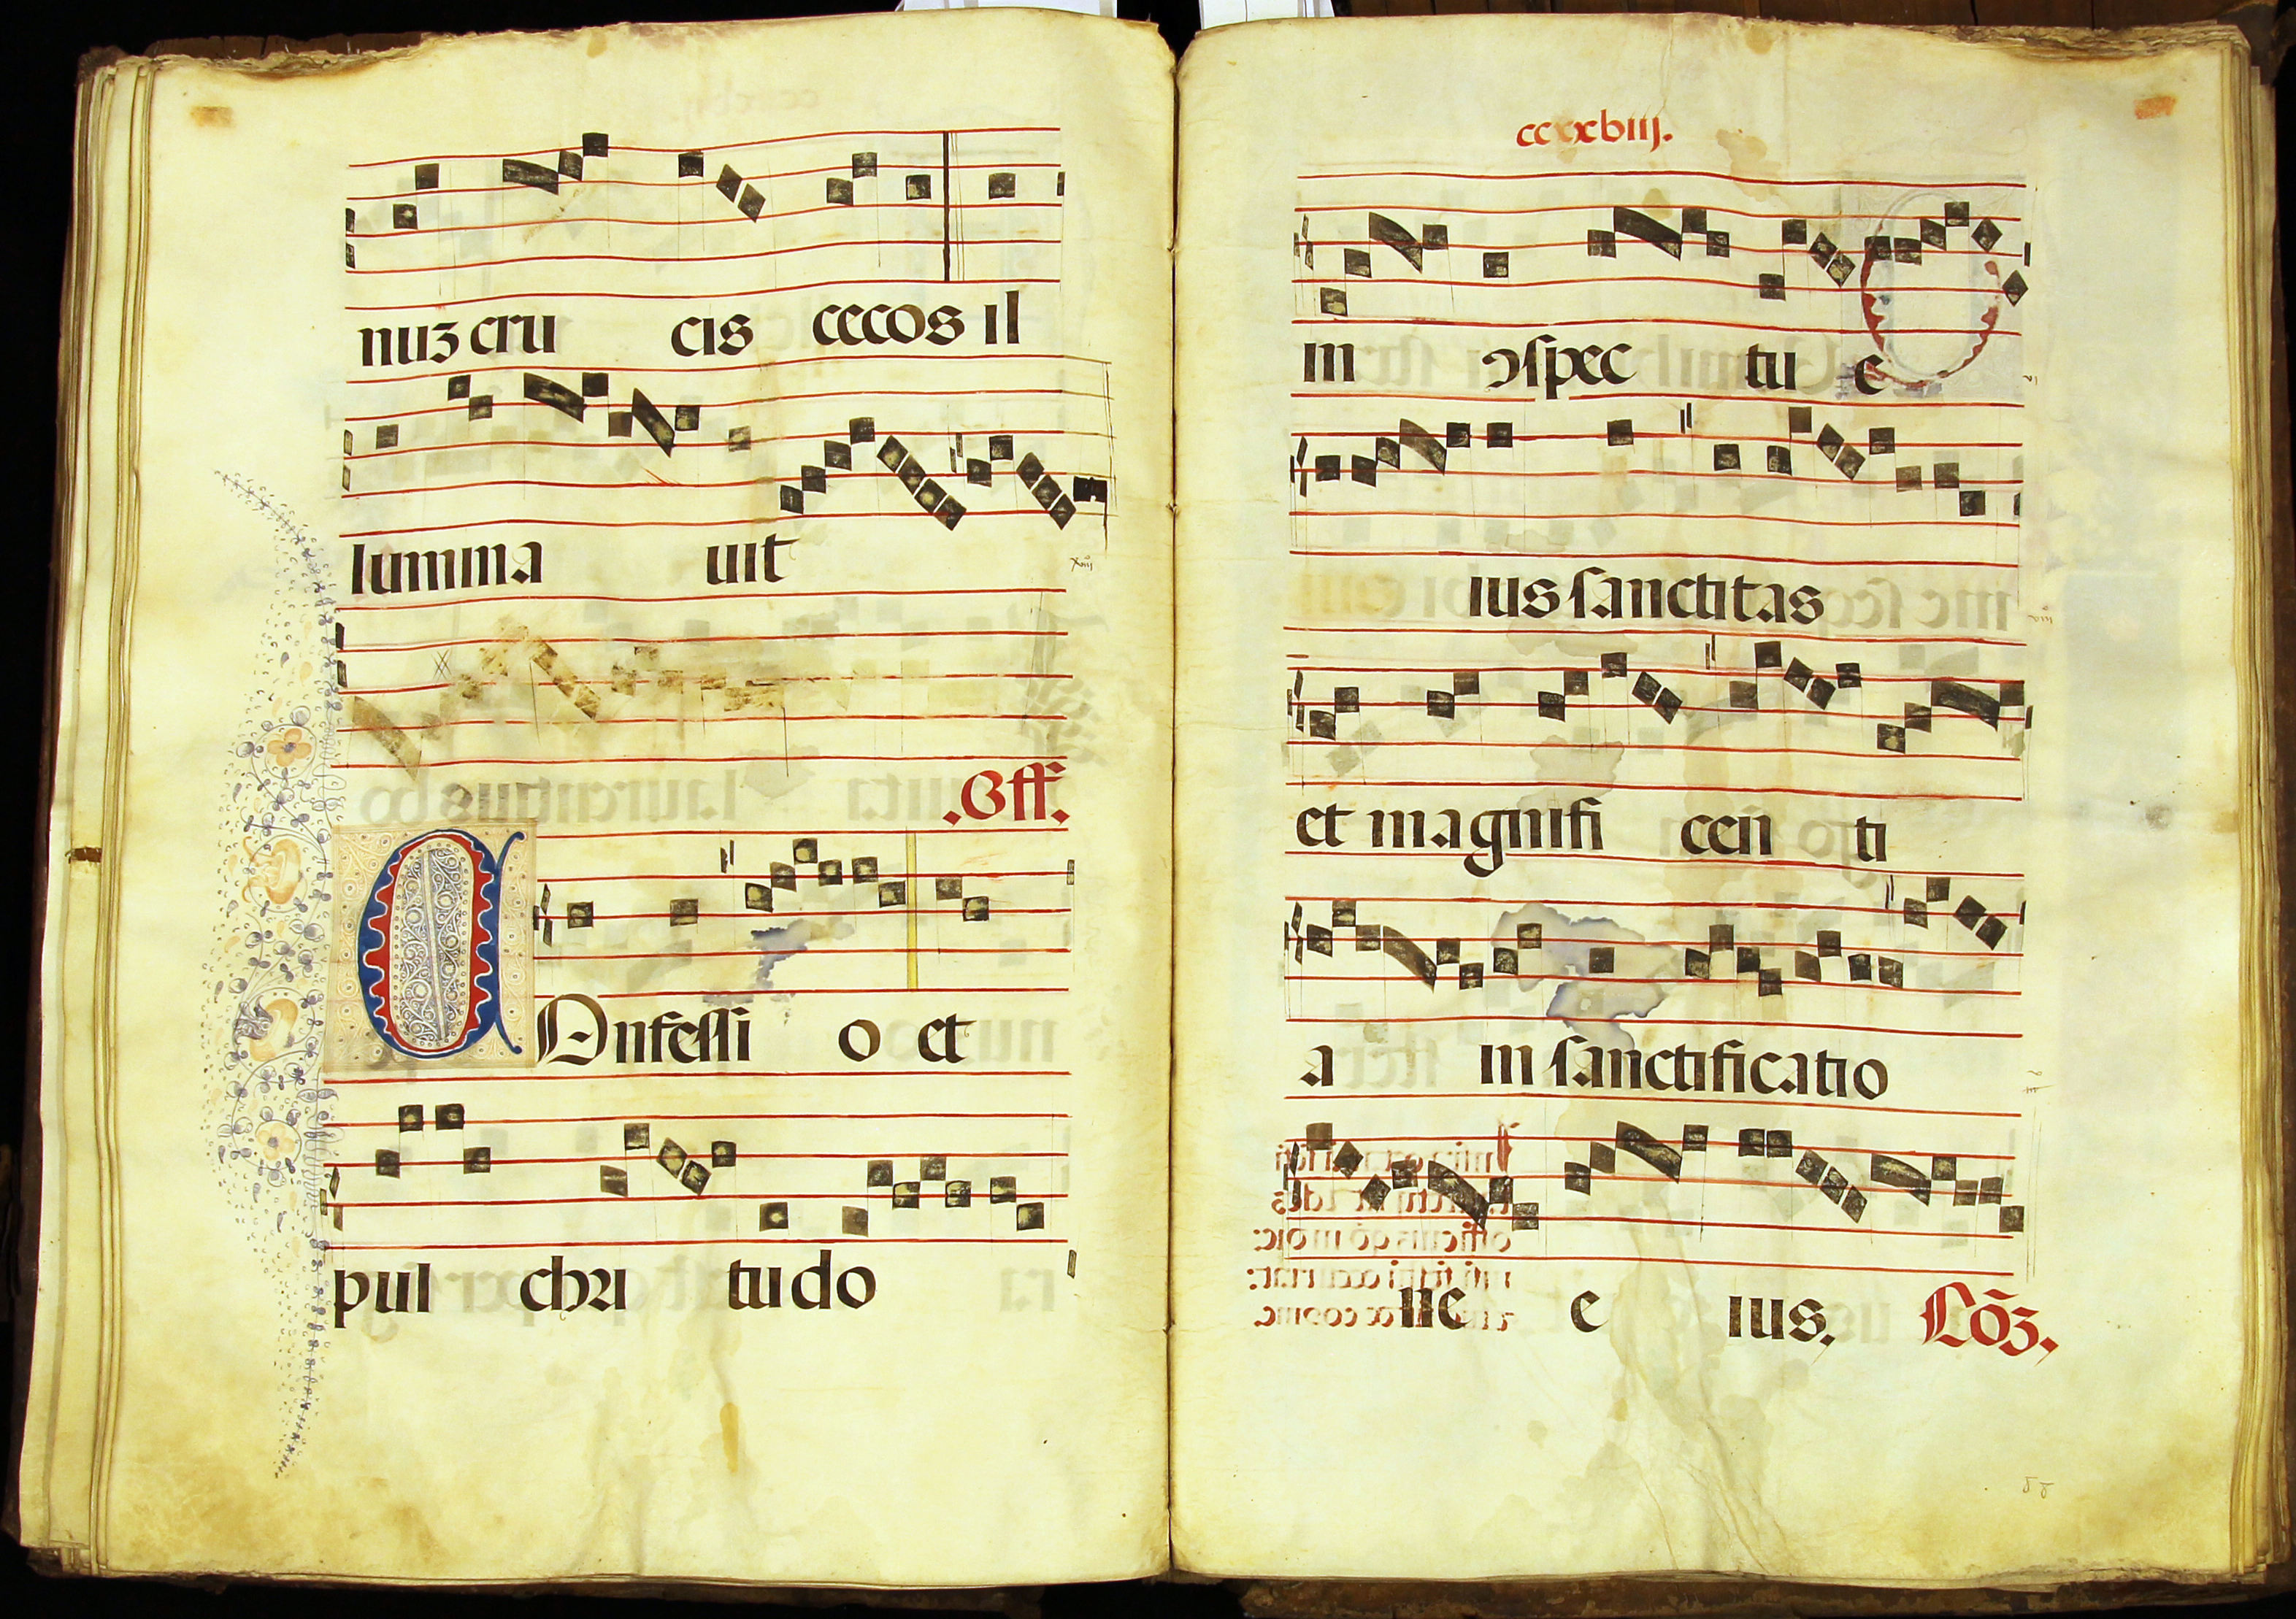 nuʒ cru cis cecos il
lumina uit
xiiii°
.Off.
COnfessi o et
pul chri tu do
ccxxbiij.
in ↄspec tu e
ius sanctitas
viii°
et magnifi cen ti
a in sanctificatio
ne e ius.
Cõʒ.